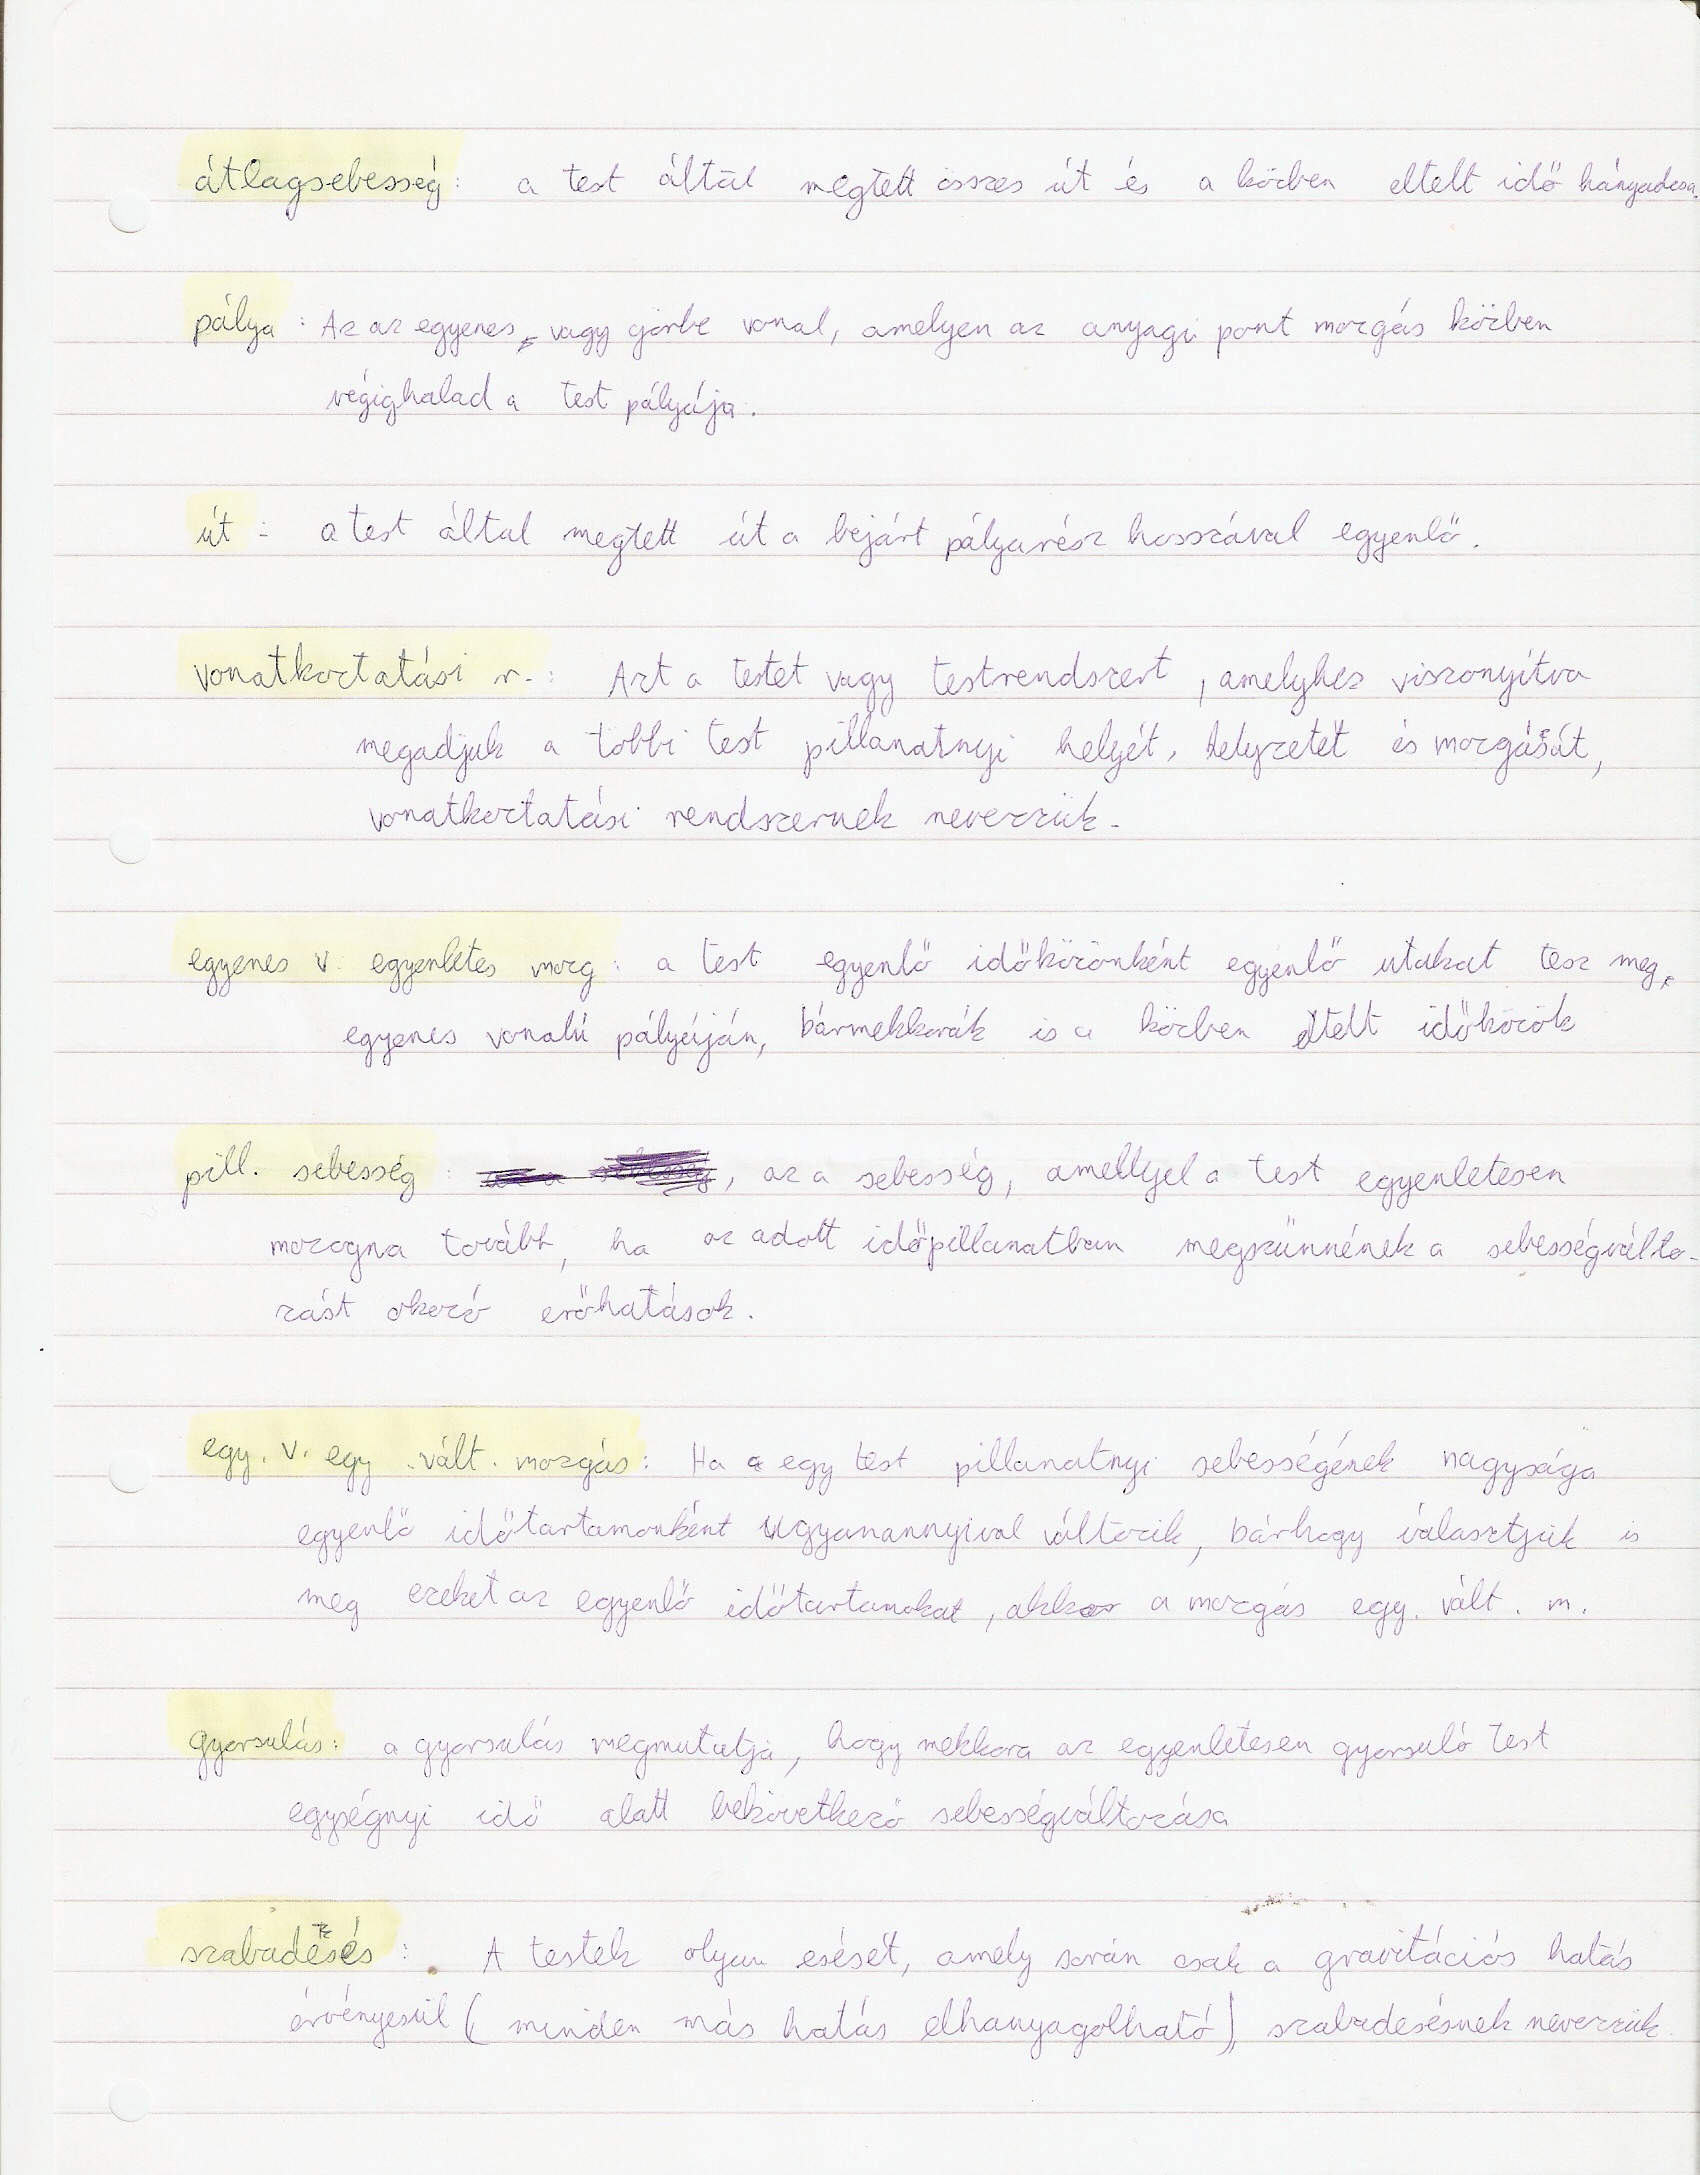 átlagsebesség: a test által megtett összes út és a közben eltelt idő hányadosa.
pálya: Az az egyenes, vagy görbe vonal, amelyen az anyagi pont mozgás közben
végighalad a test pályája.
út: a test által megtett út a bejárt pályarész hosszával egyenlő.
vonatkoztatási r.: Azt a testet vagy testrendszert, amelyhez viszonyítva
megadjuk a többi test pillanatnyi helyét, helyzetét és mozgását,
vonatkoztatási rendszernek nevezzük.
egyenes v. egyenletes mozg: a test egyenlő időközönként egyenlő utakat tesz meg,
egyenes vonalú pályáján, bármekkorák is a közben eltelt időközök
pill. sebesség: az a sebesség, az a sebesség, amellyel a test egyenletesen
mozogna tovább, ha az adott időpillanatban megszűnnének a sebességválto-
zást okozó erőhatások.
egy. v. egy. vált. mozgás: Ha egy test pillanatnyi sebességének nagysága
egyenlő időtartamonként ugyanannyival változik, bárhogy választjuk is
meg ezeket az egyenlő időtartamokat, akkor a mozgás egy. vált. m.
gyorsulás: a gyorsulás megmutatja, hogy mekkora az egyenletesen gyorsuló test
egységnyi idő alatt bekövetkező sebességváltozása
szabadesés: A testek olyan esését, amely során csak a gravitációs hatás
érvényesül (minden más hatás elhanyagolható), szabadesésnek nevezzük